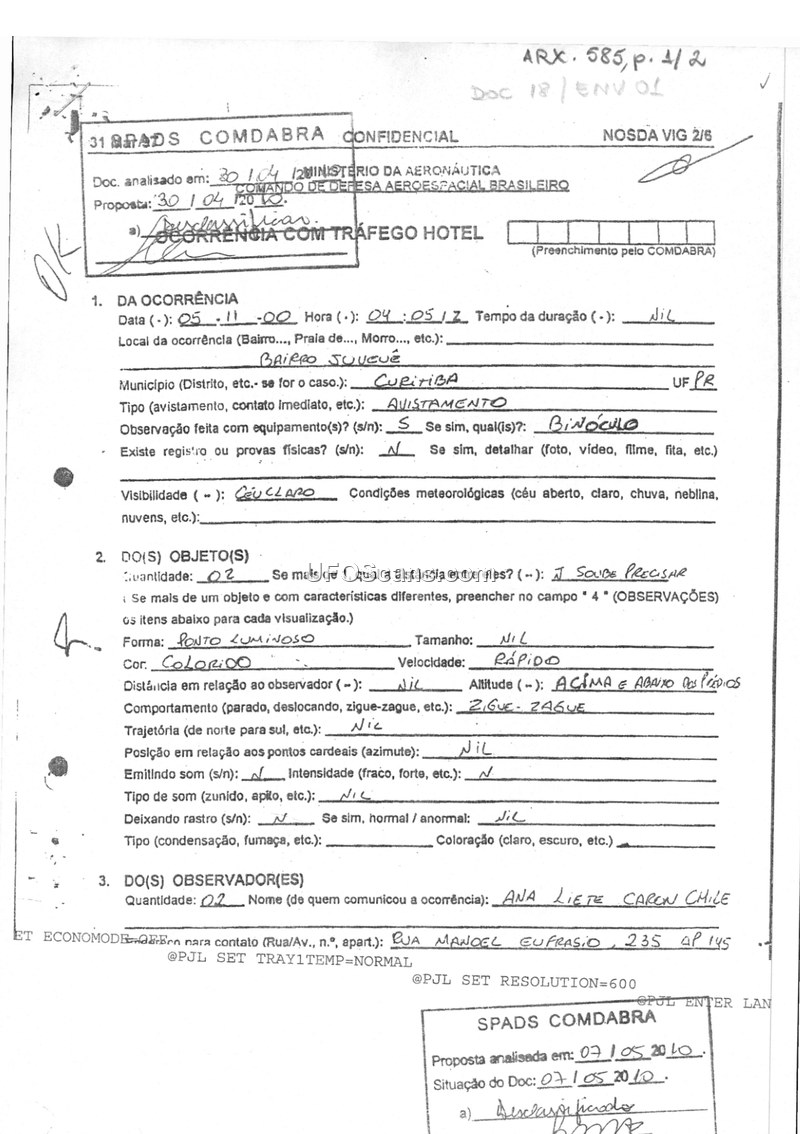 ARX. 585, p. 1/2
DOC 18 / ENV 01
SPADS COMDABRA
31 Mar 97
CONFIDENCIAL
NOSDA VIG 2/6
Doc. analisado em: 30 / 04 /20
MINISTÉRIO DA AERONÁUTICA
COMANDO DE DEFESA AEROESPACIAL BRASILEIRO
Proposta: 30 / 04 /2010.
a) Desclassificar.
OCORRÊNCIA COM TRÁFEGO HOTEL
(Preenchimento pelo COMDABRA)
OK
1. DA OCORRÊNCIA
Data (-): 05 -11 -00 Hora (-): 04 :05 / Z Tempo da duração (-): NiL
Local da ocorrência (Bairro..., Praia de..., Morro..., etc.):
BAIRRO JUVEVÊ
Município (Distrito, etc.- se for o caso.): CURITIBA UF PR
Tipo (avistamento, contato imediato, etc.): AVISTAMENTO
Observação feita com equipamento(s)? (s/n): S Se sim, qual(is)?: BINÓCULO
Existe registro ou provas físicas? (s/n): N Se sim, detalhar (foto, vídeo, filme, fita, etc.)
Visibilidade (--): CÉU CLARO Condições meteorológicas (céu aberto, claro, chuva, neblina,
nuvens, etc.):
2. DO(S) OBJETO(S)
Quantidade: 02 Se mais de 1 qual a distância entre eles? (--): Ñ SOUBE PRECISAR
UFOScans.com
Se mais de um objeto e com características diferentes, preencher no campo " 4 " (OBSERVAÇÕES)
os itens abaixo para cada visualização.)
Forma: PONTO LUMINOSO Tamanho: NiL
Cor: COLORIDO Velocidade: RÁPIDO
Distância em relação ao observador (--): NiL Altitude (--): ACIMA E ABAIXO DOS PRÉDIOS
Comportamento (parado, deslocando, zigue-zague, etc.): ZIGUE-ZAGUE
Trajetória (de norte para sul, etc.): NiL
Posição em relação aos pontos cardeais (azimute): NiL
Emitindo som (s/n): N Intensidade (fraco, forte, etc.): N
Tipo de som (zunido, apito, etc.): NiL
Deixando rastro (s/n): N Se sim, normal / anormal: NiL
Tipo (condensação, fumaça, etc.): Coloração (claro, escuro, etc.)
3. DO(S) OBSERVADOR(ES)
Quantidade: 02 Nome (de quem comunicou a ocorrência): ANA LIETE CARON CHILE
Endereço para contato (Rua/Av., n.º, apart.): RUA MANOEL EUFRASIO, 235 AP 145
ET ECONOMODE=OFF
@PJL SET TRAY1TEMP=NORMAL
@PJL SET RESOLUTION=600
@PJL ENTER LAN
SPADS COMDABRA
Proposta analisada em: 07 / 05 2010.
Situação do Doc: 07 / 05 2010.
a) Desclassificado